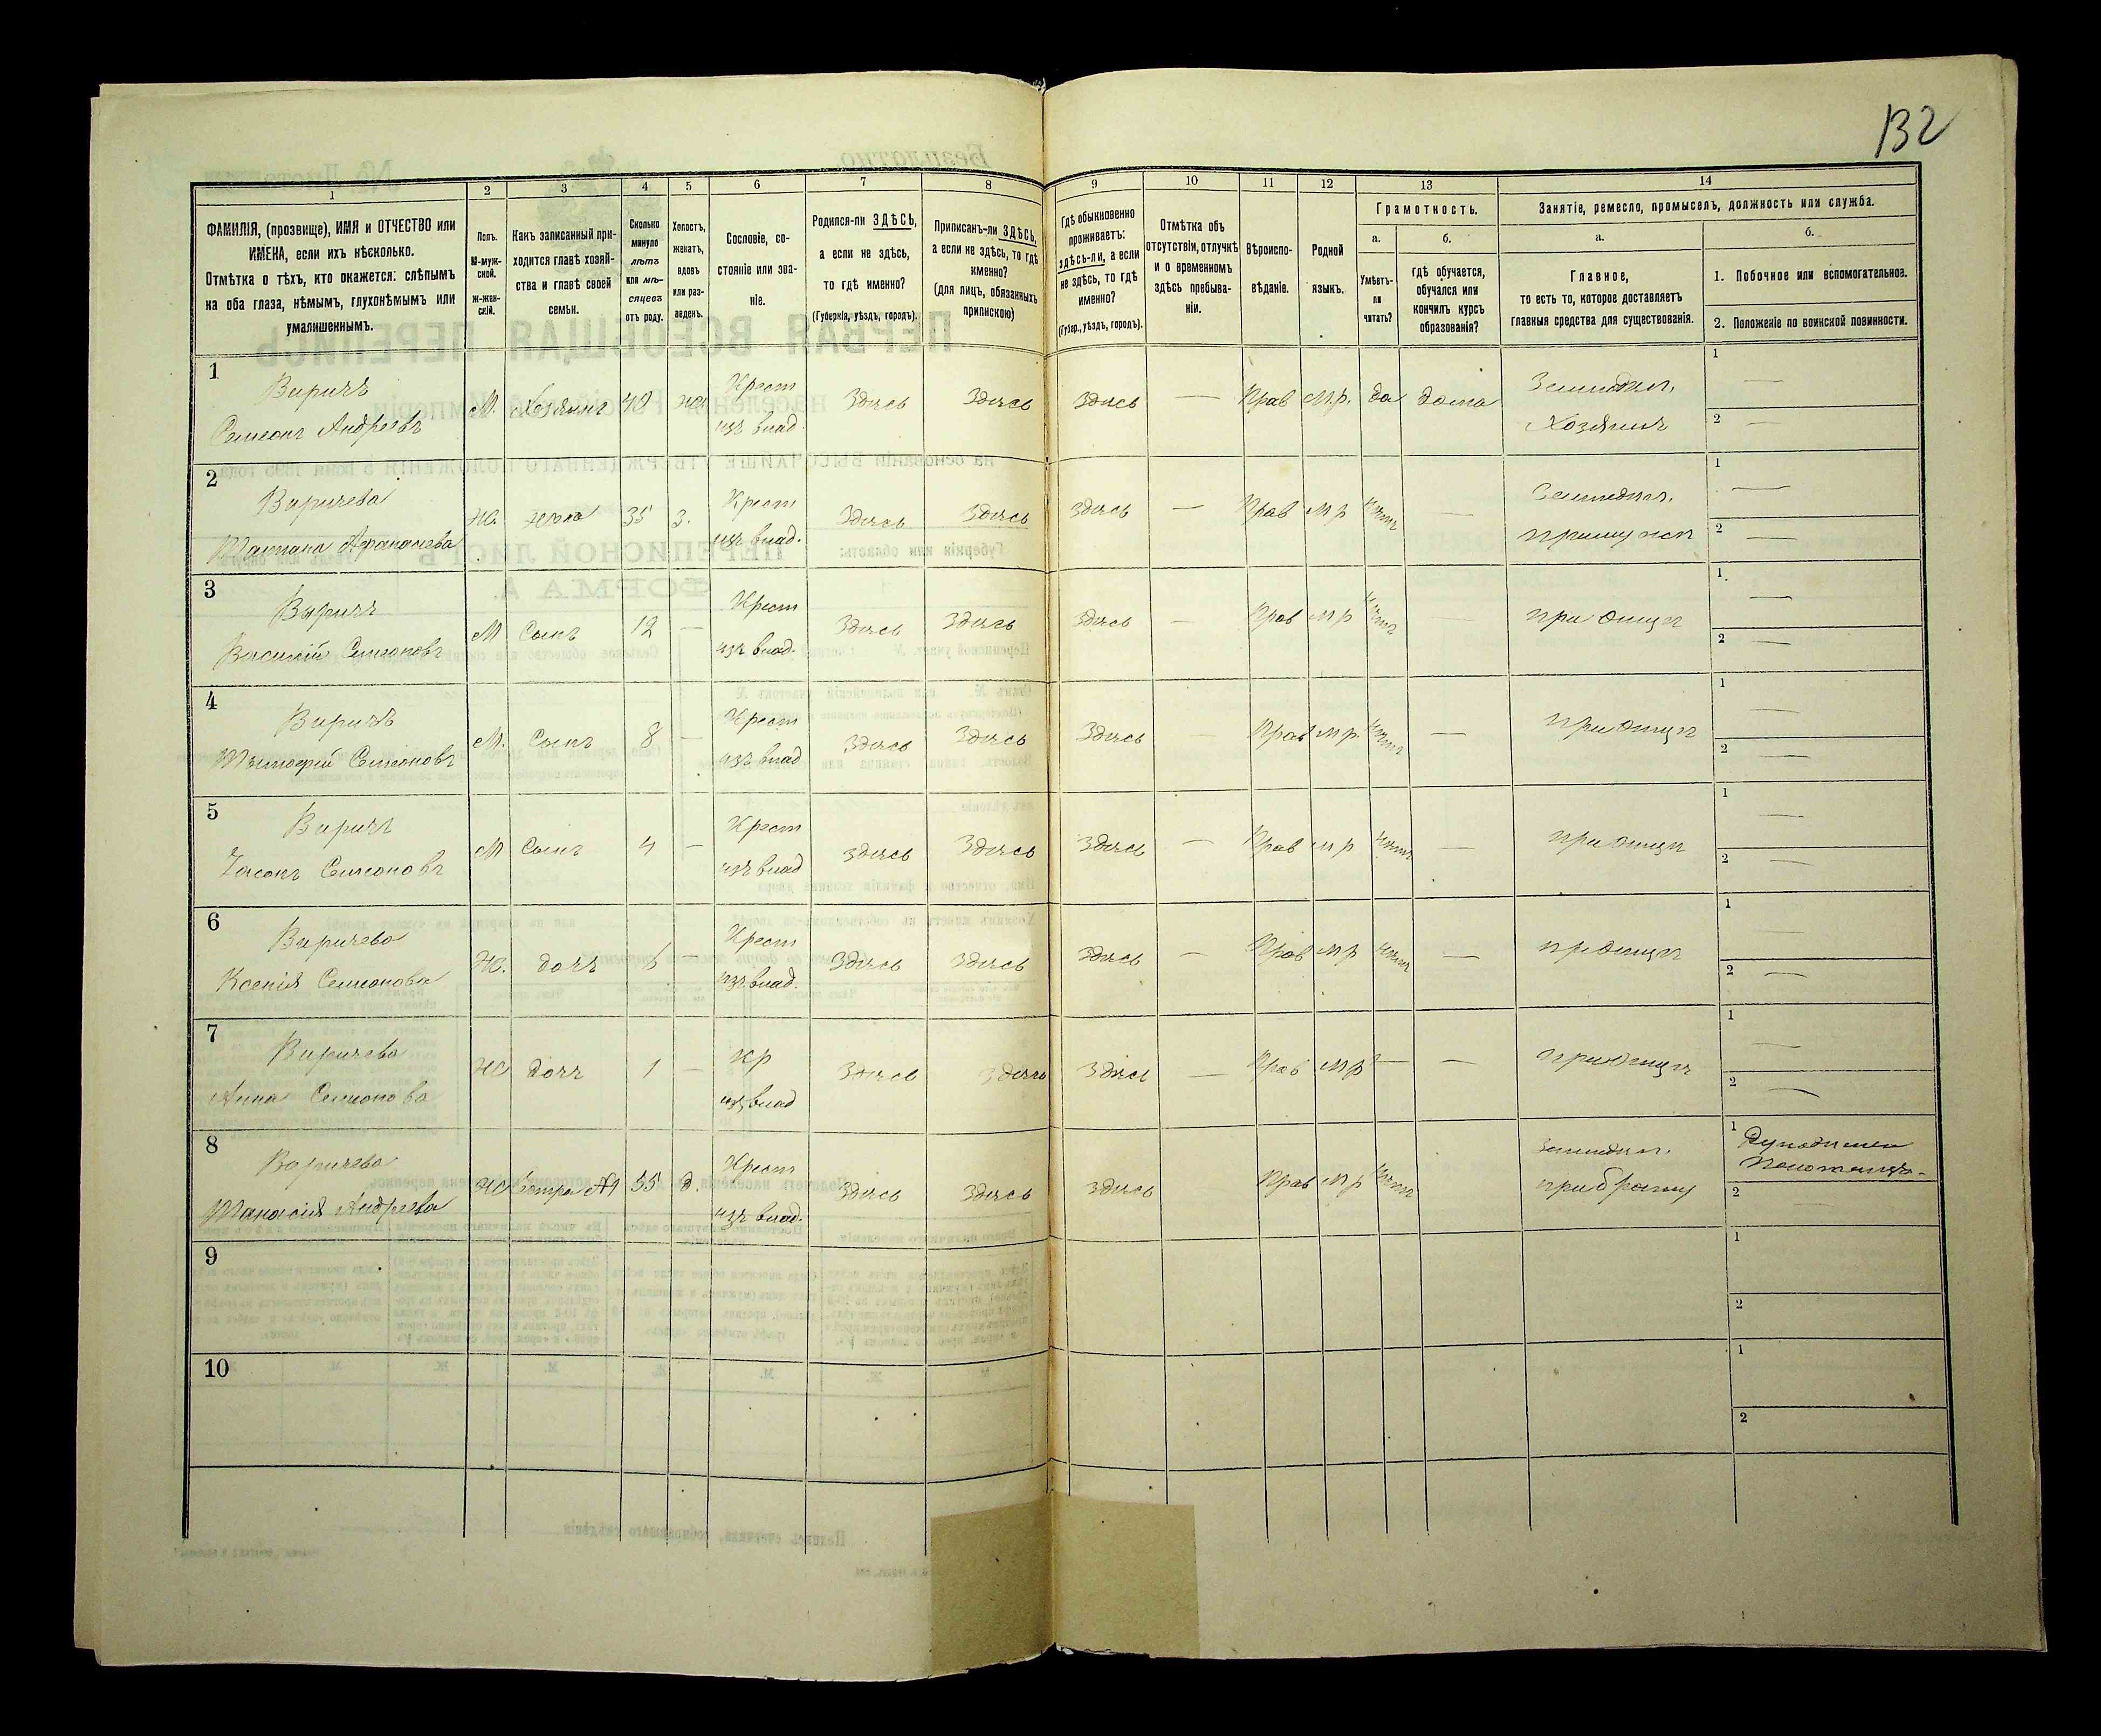 132
1 2 3 4 5 6 7 8 9 10 11 12 13 14
ФАМИЛІЯ, (прозвище), ИМЯ и ОТЧЕСТВО или
ИМЕНА, если ихъ нѣсколько.
Отмѣтка о тѣхъ, кто окажется: слѣпымъ
на оба глаза, нѣмымъ, глухонѣмымъ или
умалишеннымъ.
Полъ.
М-муж-
ской.
ж-жен-
скій.
Какъ записанный при-
ходится главѣ хозяй-
ства и главѣ своей
семьи.
Сколько
минуло
лѣтъ
или мѣ-
сяцевъ
отъ роду.
Холостъ,
женатъ,
вдовъ
или раз-
веденъ.
Сословіе, со-
стояніе или зва-
ніе.
Родился-ли ЗДѢСЬ,
а если не здѣсь,
то гдѣ именно?
(Губернія, уѣздъ, городъ).
Приписанъ-ли ЗДѢСЬ,
а если не здѣсь, то гдѣ
именно?
(для лицъ, обязанныхъ
припискою)
Гдѣ обыкновенно
проживаетъ:
здѣсь-ли, а если
не здѣсь, то гдѣ
именно?
(Губер., уѣздъ, городъ).
Отмѣтка объ
отсутствіи, отлучкѣ
и о временномъ
здѣсь пребыва-
ніи.
Вѣроиспо-
вѣданіе.
Родной
языкъ.
Грамотность.
а.
Умѣетъ-
ли
читать?
б.
гдѣ обучается,
обучался или
кончилъ курсъ
образованія?
Занятіе, ремесло, промыселъ, должность или служба.
а.
Главное,
то есть то, которое доставляетъ
главныя средства для существованія.
б.
1. Побочное или вспомогательное.
2. Положеніе по воинской повинности.
1
Виричъ Крест Земледѣл. 1 —
Семеонъ Андреевъ М. Хозяинъ 40 же изъ влад. Здѣсь Здѣсь Здѣсь — Прав М.р. да дома Хозяинъ 2 —
2
Виричева Крест Земледѣл. 1 —
Татіана Афанасіева Ж. жена 35 З. изъ влад. Здѣсь Здѣсь Здѣсь — Прав М р нѣтъ — при мужѣ 2 —
3
Виричъ Крест 1 —
Василій Семеоновъ М Сынъ 12 — изъ влад. Здѣсь Здѣсь Здѣсь — Прав М р нѣтъ — при отцѣ 2 —
4
Виричъ Крест 1 —
Тимофій Семеоновъ М. Сынъ 8 — изъ влад Здѣсь Здѣсь Здѣсь — Прав М р. нѣтъ — при отцѣ 2 —
5
Виричъ Крест 1 —
Іасонъ Семеоновъ М Сынъ 4 — изъ влад Здѣсь Здѣсь Здѣсь — Прав М р нѣтъ — при отцѣ 2 —
6
Виричева Крест 1 —
Ксенія Семеонова Ж. дочь 6 — изъ влад. Здѣсь Здѣсь Здѣсь — Прав М р нѣтъ — пр отцѣ 2 —
7
Виричева кр 1 —
Анна Семеонова Ж дочь 1 — изъ влад Здѣсь Здѣсь Здѣсь — Прав М р — — при отцѣ 2 —
8
Виричева Крест Земледѣл. 1
Танасія Андреева Ж Сестра №1 55 д. изъ влад. Здѣсь Здѣсь Здѣсь Прав М р нѣтъ при брату 2 —
9 1
2
10 1
2